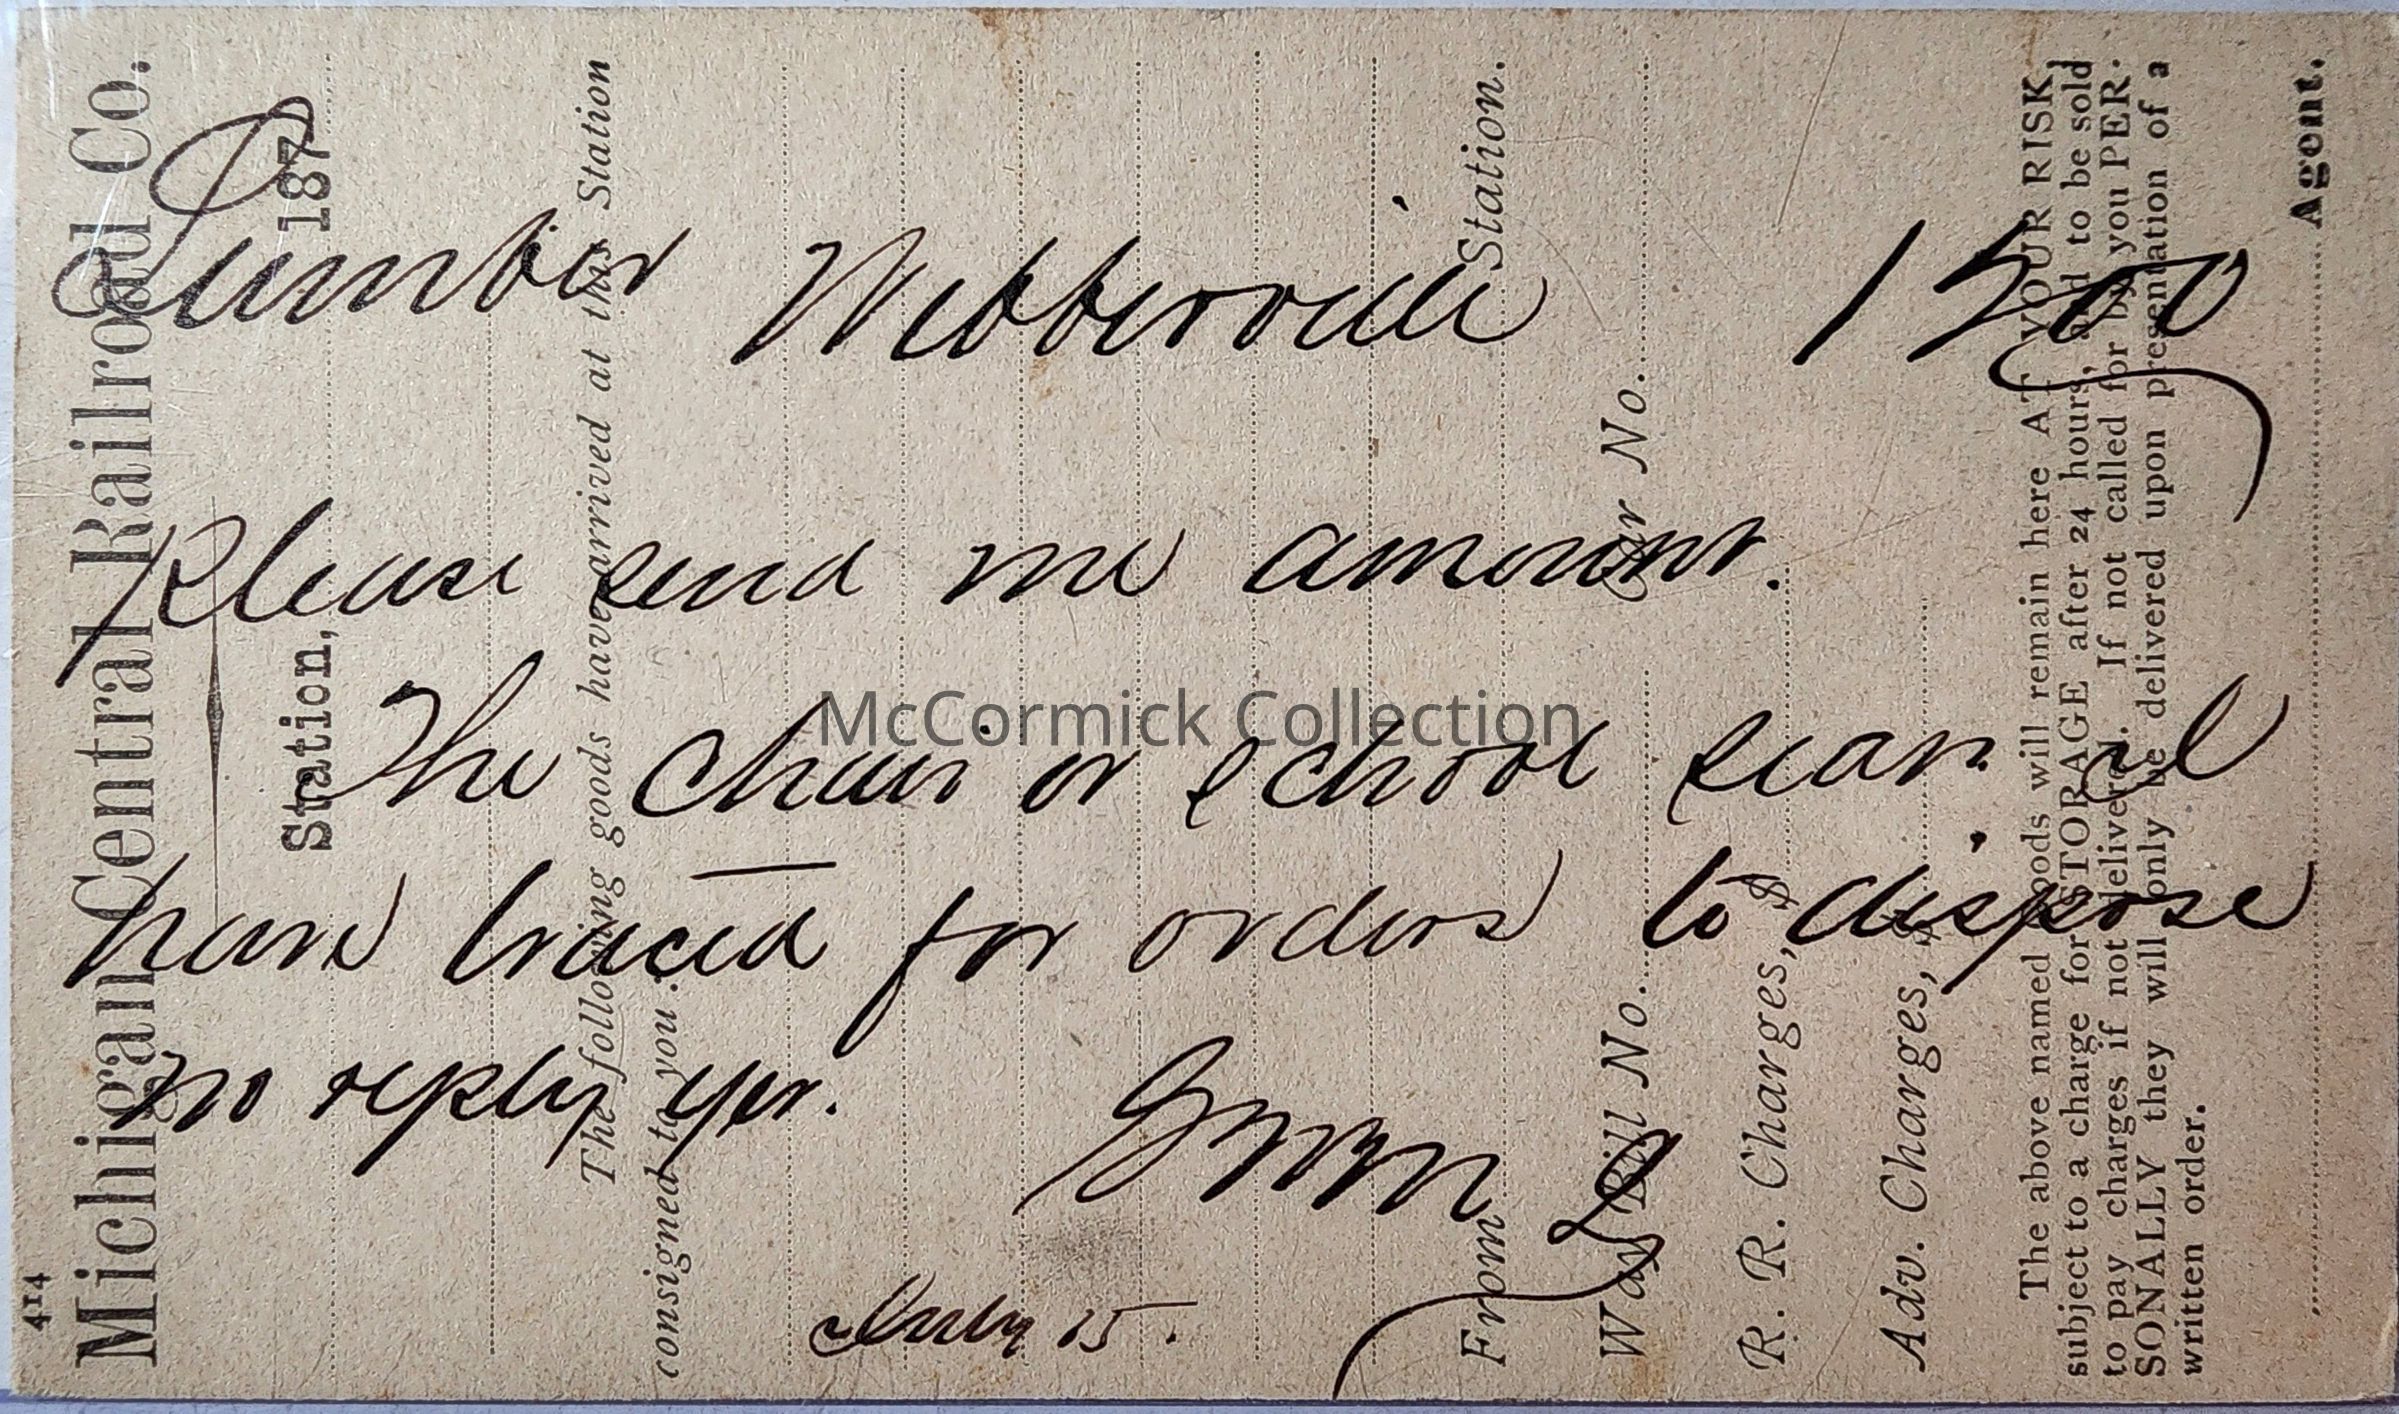 Lumber Webberville 1500
Please send me amount.
The chair or school seat.
have traced for orders to dispose
no reply yet.
July 15.
McCormick Collection
414
Michigan Central Railroad Co.
Station, 187
The following goods have arrived at this Station
consigned to you:
From Station.
Way Bill No. Car No.
R. R. Charges, $
Adv. Charges, $
The above named goods will remain here AT YOUR RISK,
subject to a charge for STORAGE after 24 hours, and to be sold
to pay charges if not delivered. If not called for by you PER-
SONALLY they will only be delivered upon presentation of a
written order.
Agent.